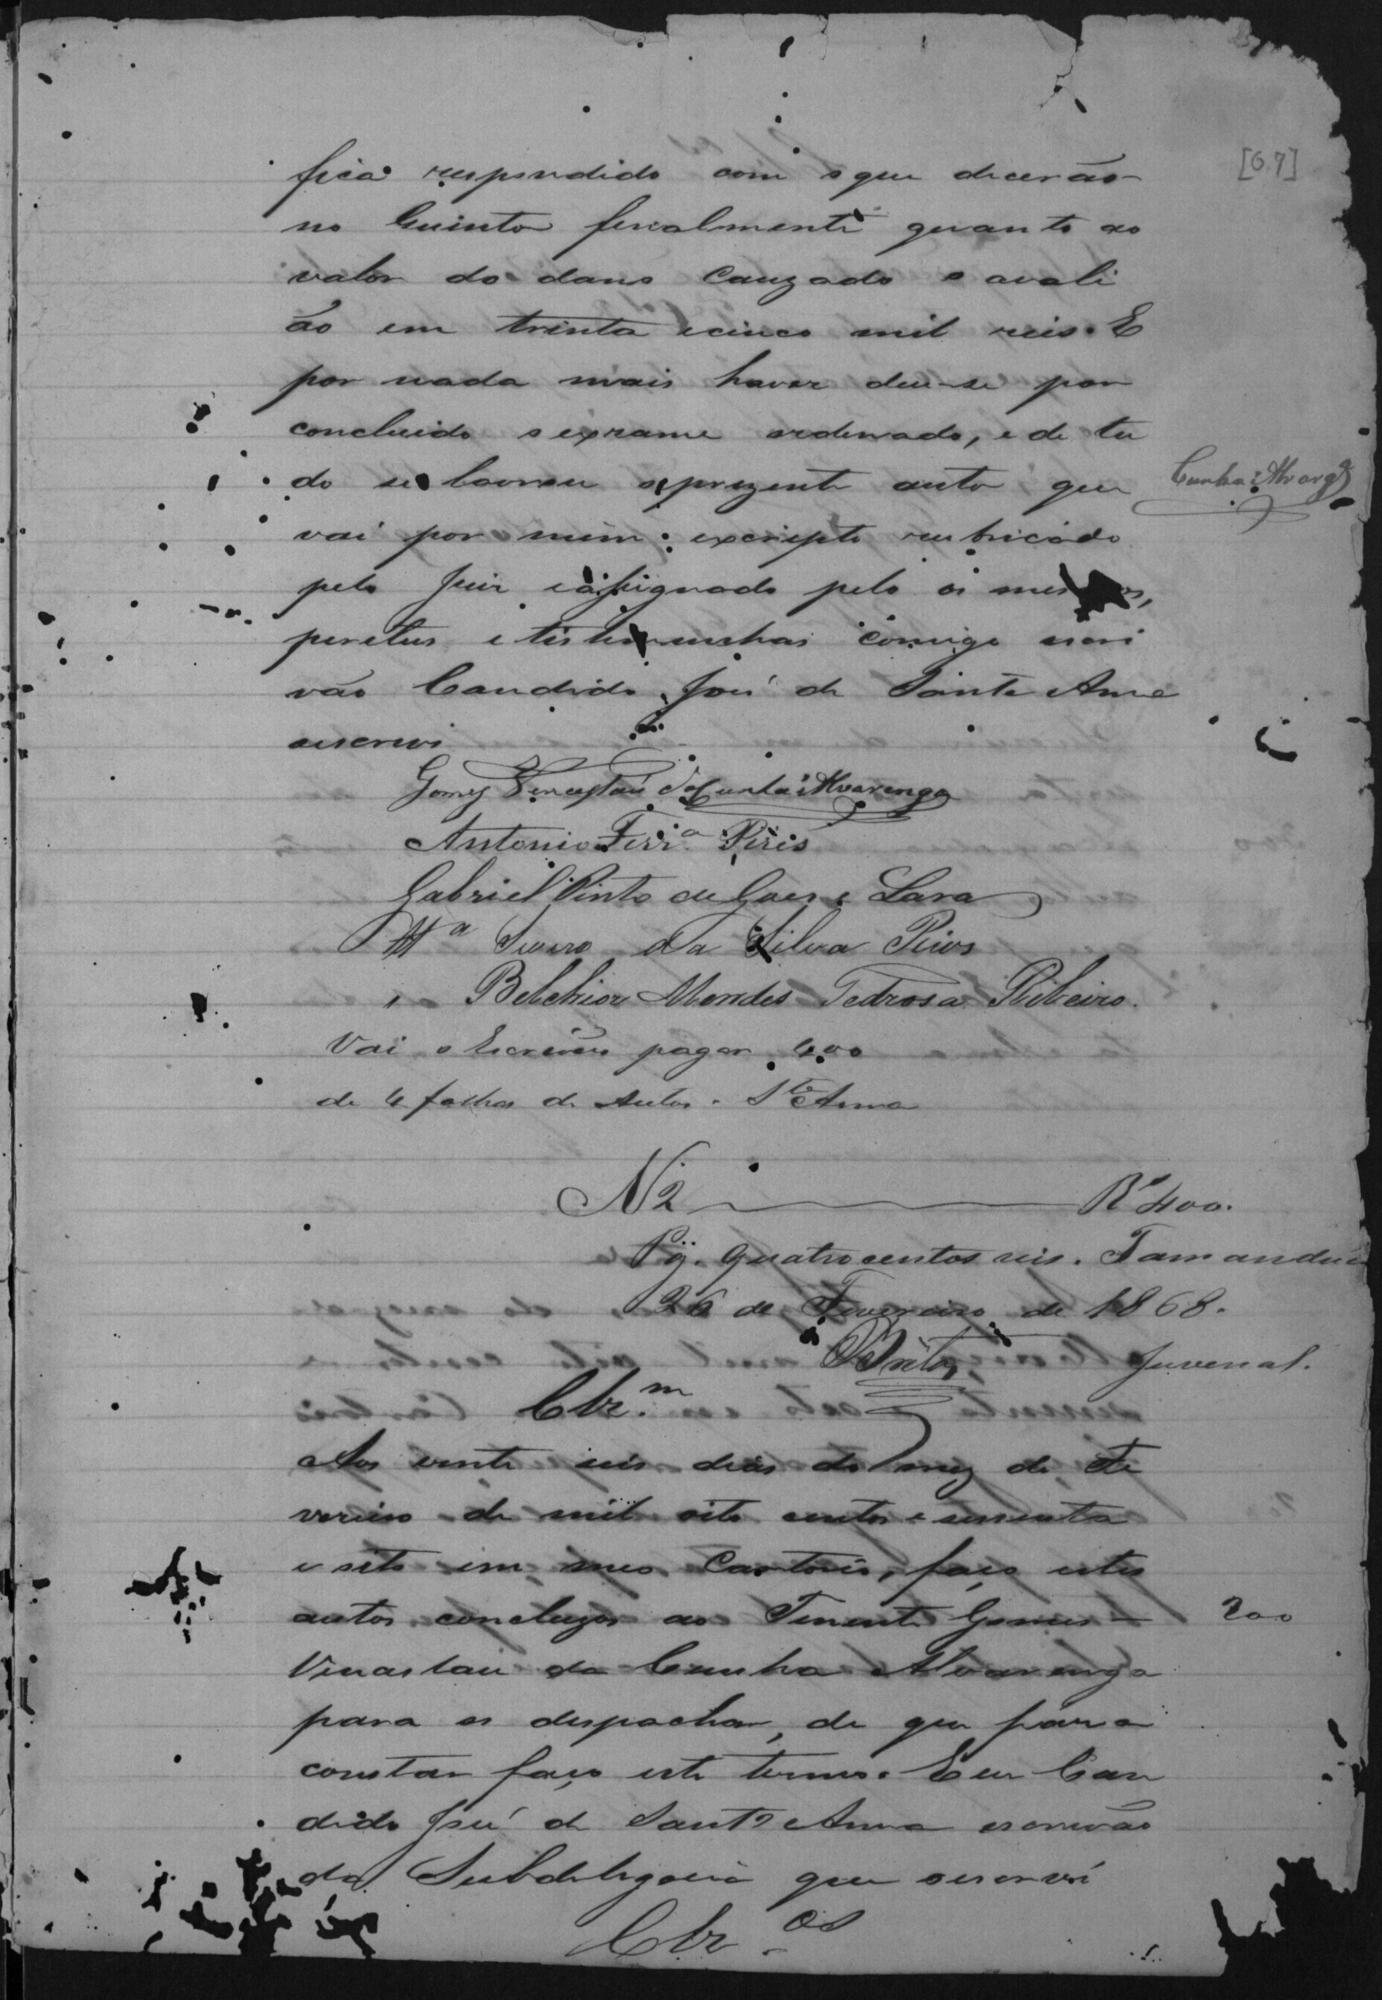 [6.7]
fica respondido com o que decerão
no Quinto finalmente quanto ao
valor do dano cauzado o avali
ão em trinta e cinco mil reis. E
por nada mais haver deu-se por
concluido o exzame ordenado, e de tu
do se lavrou o prezente auto que
Cunha e Alvarga
vai por mim excripto rubricado
pelo Juiz e assignado pelo os mesmos,
peretos e testemunhas comigo escri
vão Candido José de Santa Anna
oescrevi
Gomes Venceslau da Cunha e Alvarenga
Antonio Ferr.a Piris
Gabriel Pinto de Goes e Lara
Severo da Silva Rios
Belchior Mendes Pedrosa Ribeiro.
Vai o Escrivão pagar 400
de 4 folhas de Autos. S.ta Anna
N 2 R.s 400.
Pg. quatrocentos reis. Tamanduá
26 de Fevereiro de 1868.
Brito Juvenal.
Clz.m
Aos vinte seis dias do mez de Fe
vereiro de mil oito centos e sessenta
e oito em meo Cartorio, faço estes
autos concluzos ao Tenente Gomes 200
Venceslau da Cunha Alvarenga
para os despachar, de que para
constar faço este termo. Eu Can
dido José de Sant'Anna escrivão
da Subdelegacia que oescrevi
Clz.os